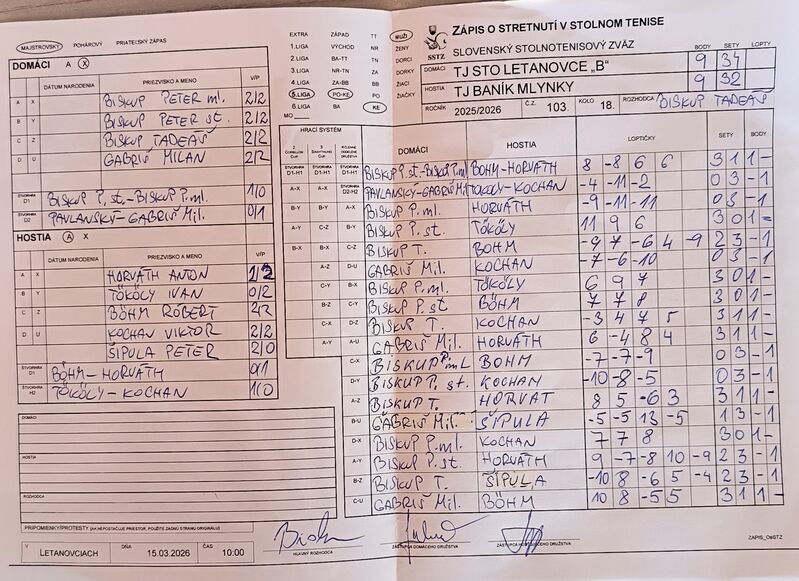 MAJSTROVSKÝ POHÁROVÝ PRIATEĽSKÝ ZÁPAS
DOMÁCI A X
DÁTUM NARODENIA PRIEZVISKO A MENO V/P
A X BISKUP PETER ml. 2/2
B Y BISKUP PETER st. 2/2
C Z BISKUP TADEÁŠ 2/2
D U GABRIŠ MILAN 2/2
ŠTVORHRA D1 BISKUP P. st. - BISKUP P. ml. 1/0
ŠTVORHRA D2 PAVLANSKÝ - GABRIŠ Mil. 0/1
HOSTIA A X
DÁTUM NARODENIA PRIEZVISKO A MENO V/P
A X HORVÁTH ANTON
B Y TÖKÖLY IVAN 0/2
C Z BÖHM RÓBERT 2/2
D U KOCHAN VIKTOR 2/2
ŠIPULA PETER 2/0
ŠTVORHRA BÖHM - HORVÁTH 0/1
ŠTVORHRA H2 TÖKÖLY - KOCHAN 1/0
DOMÁCI
HOSTIA
ROZHODCA
PRIPOMIENKY/PROTESTY (AK NEPOSTAČUJE PRIESTOR, POUŽITE ZADNÚ STRANU ORIGINÁLU)
V LETANOVCIACH DŇA 15.03.2026 ČAS 10:00
EXTRA ZÁPAD TT MUŽI
1.LIGA VÝCHOD NR ŽENY
2.LIGA BA-TT TN DORCI
3.LIGA NR-TN ZA DORKY
4.LIGA ZA-BB BB ŽIACI
5.LIGA PO-KE PO ŽIAČKY
6.LIGA BA KE
MO
SSTZ
ZÁPIS O STRETNUTÍ V STOLNOM TENISE
SLOVENSKÝ STOLNOTENISOVÝ ZVÄZ BODY SETY LOPTY
DOMÁCI TJ STO LETANOVCE „B" 9 34
HOSTIA TJ BANÍK MLYNKY 9 32
ROČNÍK 2025/2026 Č.Z. 103. KOLO 18. ROZHODCA BISKUP TADEÁŠ
HRACÍ SYSTÉM DOMÁCI HOSTIA LOPTIČKY SETY BODY
D1-H1 D1-H1 D1-H1 BISKUP P. st. - BISKUP P. ml. BÖHM - HORVÁTH 8 -8 6 6 3 1 1 -
A-X A-X D2-H2 PAVLANSKÝ - GABRIŠ Mil. TÖKÖLY - KOCHAN -4 -11 -2 0 3 - 1
B-Y B-Y A-X BISKUP P. ml. HORVÁTH -9 -11 -11 0 3 - 1
A-Y C-Z B-Y BISKUP P. st. TÖKÖLY 11 9 6 3 0 1 -
B-X B-X C-Z BISKUP T. BÖHM -9 7 -6 4 -9 2 3 - 1
A-Z D-U GABRIŠ Mil. KOCHAN -7 -6 -10 0 3 - 1
C-Y B-X BISKUP P. ml. TÖKÖLY 6 9 7 3 0 1 -
B-Z C-Y BISKUP P. st BÖHM 7 7 8 3 0 1 -
C-X D-Z BISKUP T. KOCHAN -3 4 7 5 3 1 1 -
A-Y A-U GABRIŠ Mil. HORVÁTH 6 -4 8 4 3 1 1 -
C-X BISKUP P. ml BÖHM -7 -7 -9 0 3 - 1
D-Y BISKUP P. st. KOCHAN -10 -8 -5 0 3 - 1
A-Z BISKUP T. HORVAT 8 5 -6 3 3 1 1 -
B-U GABRIŠ Mil. ŠIPULA -5 -5 13 -5 1 3 - 1
D-X BISKUP P. ml. KOCHAN 7 7 8 3 0 1 -
A-Y BISKUP P. st. HORVÁTH 9 -7 -8 10 -9 2 3 - 1
B-Z BISKUP T. ŠIPULA -10 8 -6 5 -4 2 3 - 1
C-U GABRIŠ Mil. BÖHM 10 8 -5 5 3 1 1 -
HLAVNÝ ROZHODCA ZÁSTUPCA DOMÁCEHO DRUŽSTVA ZÁSTUPCA HOSŤUJÚCEHO DRUŽSTVA
ZAPIS_OeSTZ